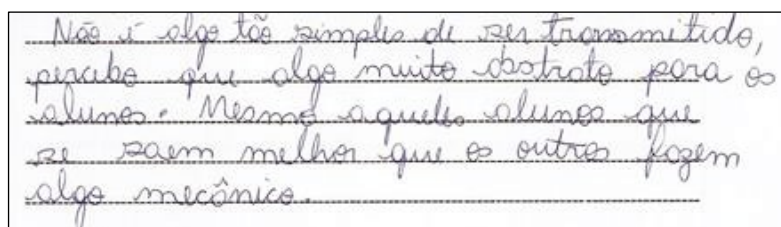 Não é algo tão simples de ser transmitido,
percebo que algo muito abstrato para os
alunos. Mesmo aqueles alunos que
se saem melhor que os outros fazem
algo mecânico.